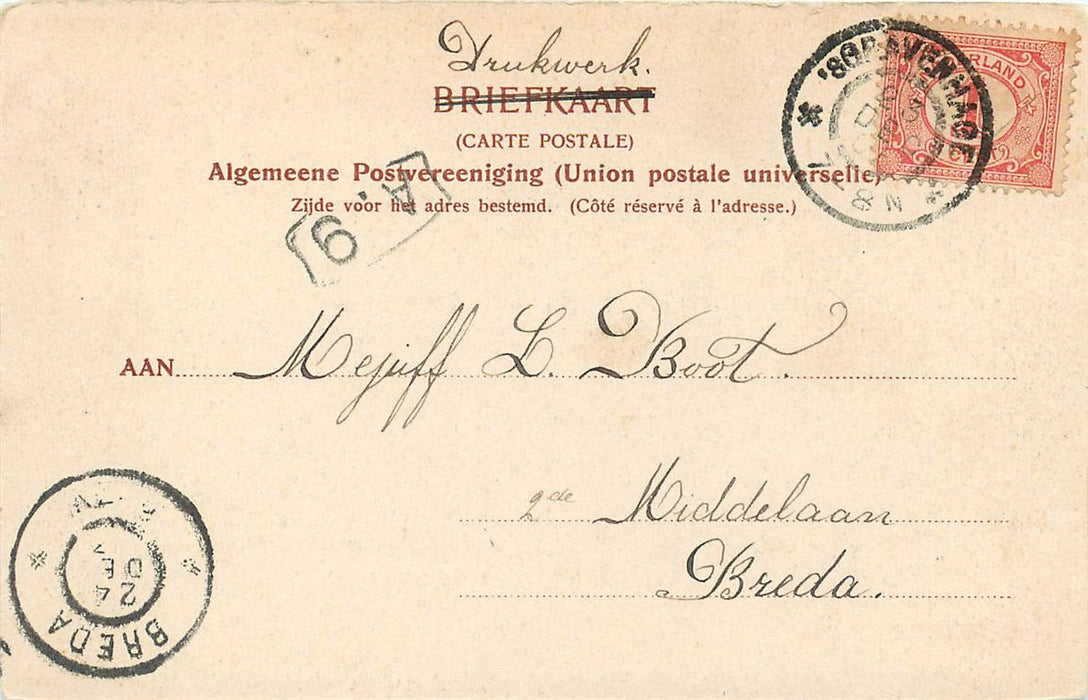 Drukwerk.
BRIEFKAART
(CARTE POSTALE)
Algemeene Postvereeniging (Union postale universelle)
Zijde voor het adres bestemd. (Côté réservé à l'adresse.)
'SGRAVENHAGE
A. 9
AAN Mejuff L. Boot.
2de Middelaan
Breda.
24
DE
BREDA